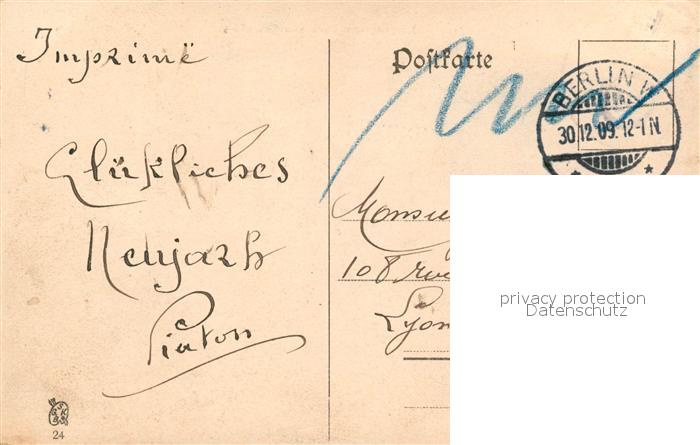 Imprimé
Glükliches
Neujarh
Piaton
24
Postkarte
BERLIN W
30.12.09.12-1N.
Monsieu
108 rue
Lyon
privacy protection
Datenschutz